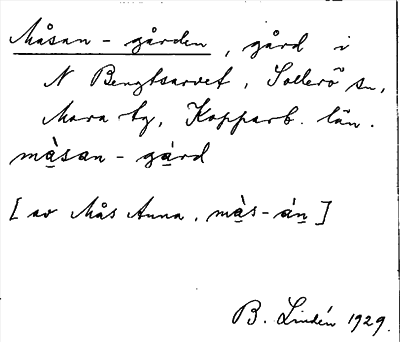 Måsan-gården, gård i
N Bengtsarvet, Sollerö sn,
Mora tg, Kopparb. län.
mà̱san-gà̱rd
[av Mås Anna, mà̱s-án̲]
B. Lindén 1929.